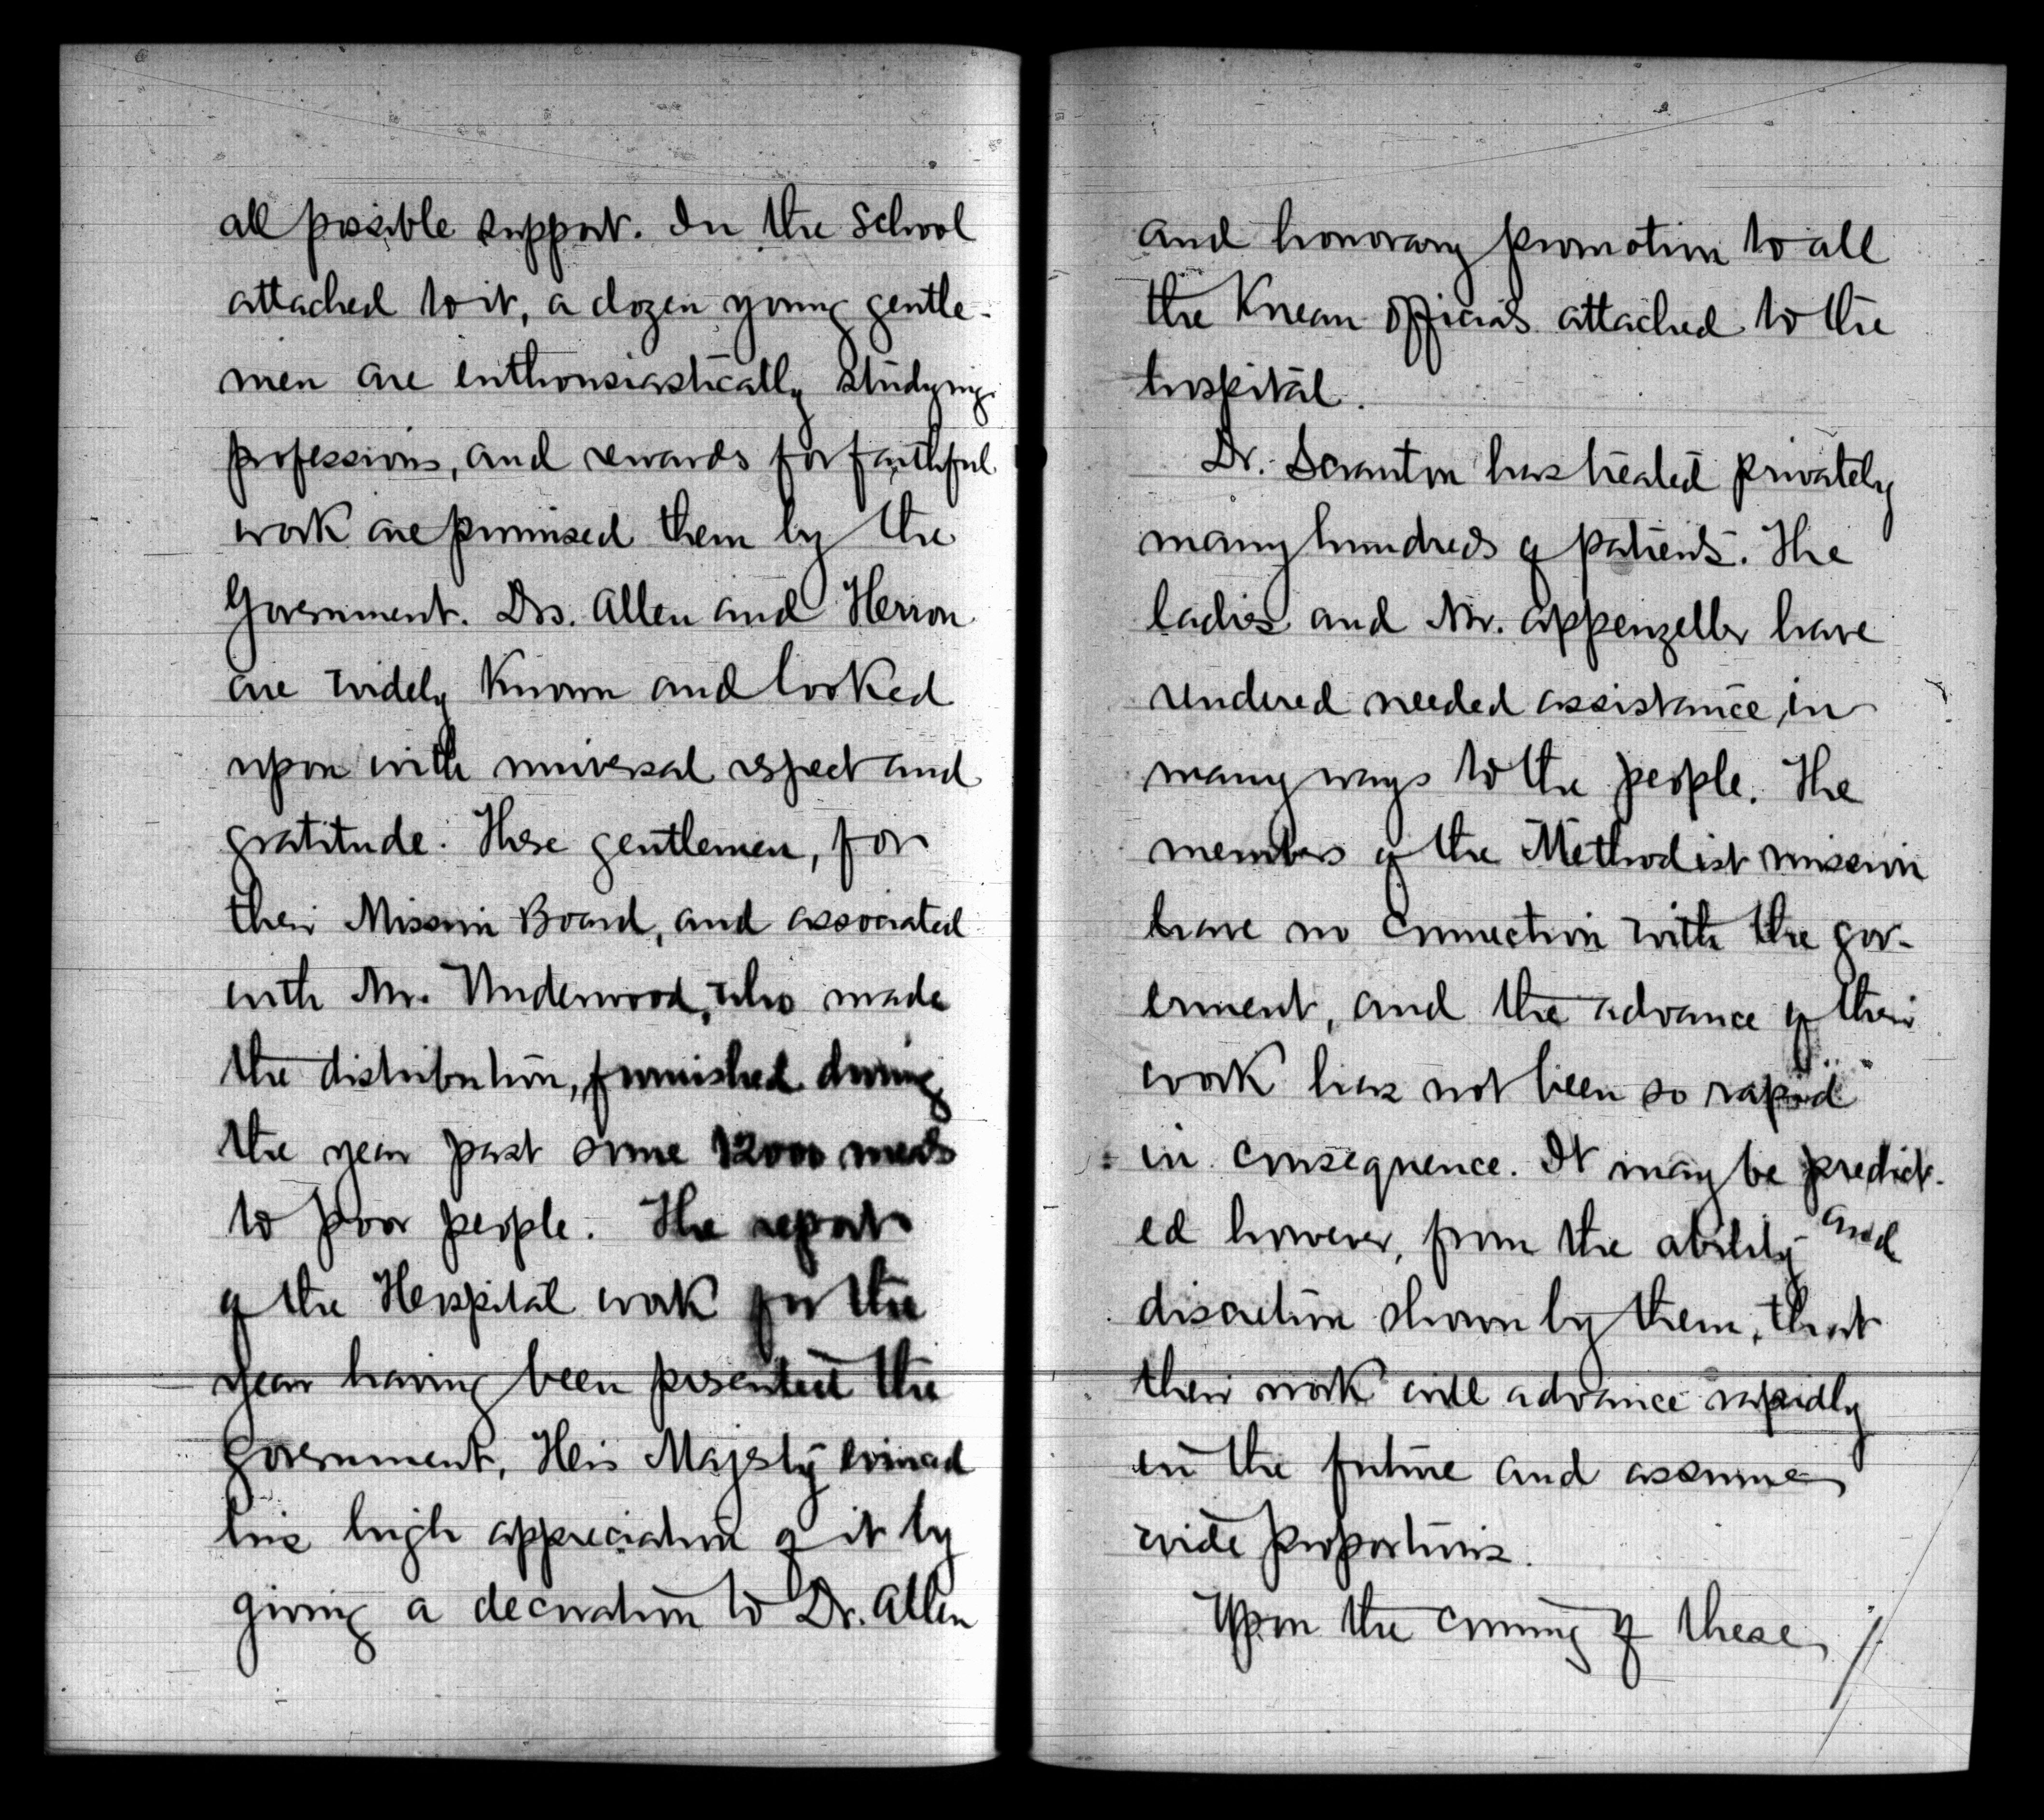 all possible support. In the School
attached to it, a dozen young gentle-
men are enthousiastically studying
professions, and rewards for faithful
work are promised them by the
Government. Drs. Allen and Herron
are widely known and looked
upon with universal respect and
gratitude. These gentlemen, for
their Mission Board, and associated
with Mr. Underwood, who made
the distribution, furnished during
the year past some 12000 meals
to poor people. The report
of the Hospital work for the
year having been presented the
Government, His Majesty evinced
his high appreciation of it by
giving a decoration to Dr. Allen
and honorary promotion to all
the Korean officials attached to the
hospital.
Dr. Scranton has treated privately
many hundreds of patients. The
ladies and Mr. Appenzeller have
rendered needed assistance in
many ways to the people. The
members of the Methodist mission
have no connection with the gov-
ernment, and the advance of their
work has not been so rapid
in consequence. It may be predict-
ed however, from the ability and
discretion shown by them, that
their work will advance rapidly
in the future and assume
wide proportions.
Upon the coming of these